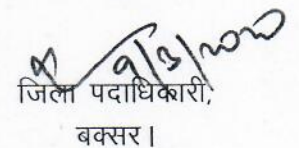 9/3/2020
जिला पदाधिकारी,
बक्सर।